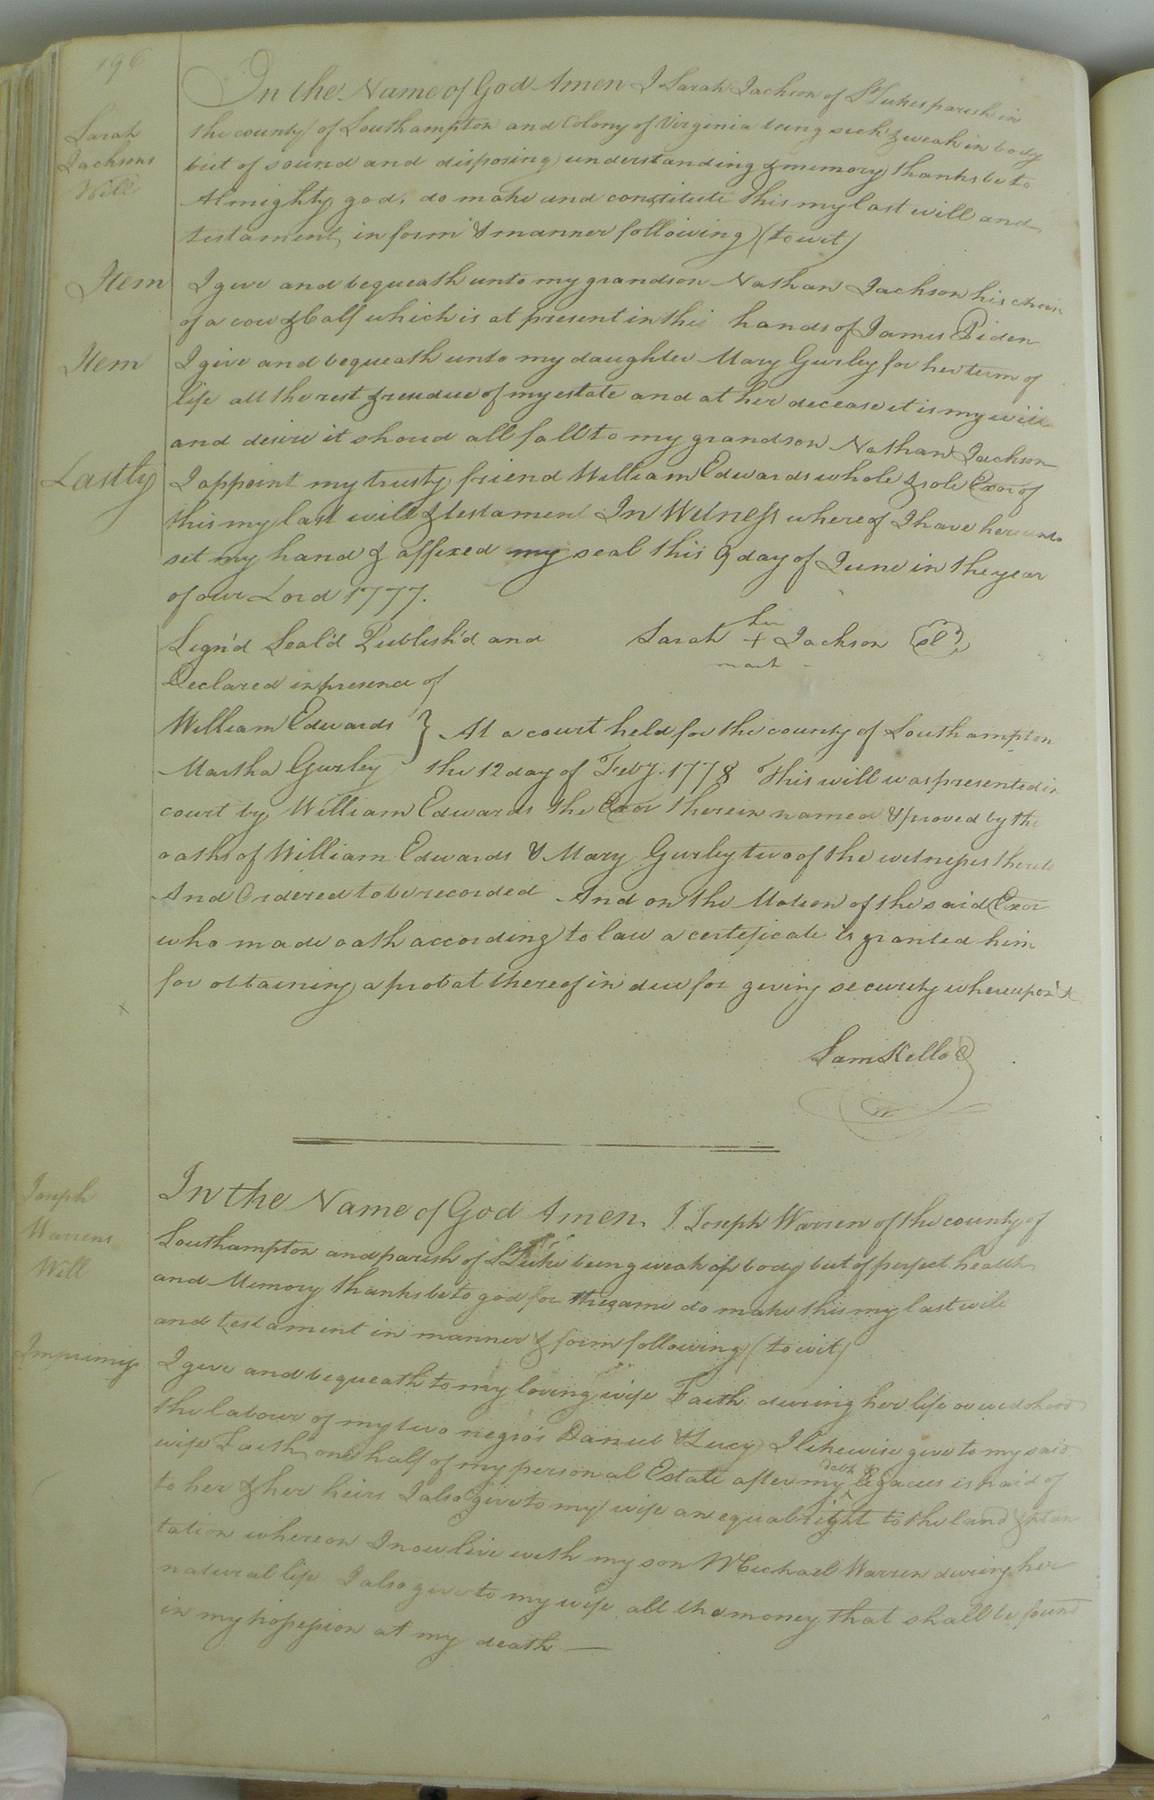 196
Sarah
Jacksons
Will
In the Name of God Amen I Sarah Jackson of St Lukes parish in
the county of Southampton and Colony of Virginia being sick & weak in body
but of sound and disposing understanding & memory thanks be to
Almighty god, do make and constitute this my last will and
testament, in form & manner following (towit)
Item I give and bequeath unto my grandson Nathan Jackson his chois
of a cow & Calf which is at present in this hands of James
Item I give and bequeath unto my daughter Mary Gurley for her term of
life all the rest & residue of my estate and at her decease it is my will
and desire it shoud all fall to my grandson Nathan Jackson
Lastly I appoint my trusty friend William Edwards whole & sole Exor of
this my last will & testament In Witness whereof I have hereunto
set my hand & affixed my seal this 9 day of June in the year
of our Lord 1777.
Sign'd Seal'd Publish'd and Sarah her + mark Jackson (sl)
Declared in presence of
William Edwards } At a court held for the county of Southampton
Martha Gurley the 12 day of Feby. 1778 This will was presented in
court by William Edwards the Exor therein named & proved by the
oaths of William Edwards & Mary Gurley two of the witnesses thereto
And Ordered to be recorded And on the Motion of the said Exor
who made oath according to law a certificate is granted him
for obtaining a probat thereof in due for giving security whereupon &
Sam Kello
Joseph
Warrens
Will
In the Name of God Amen. I Joseph Warren of the county of
Southampton and parish of St Luke being weak of body but of perfect health
and Memory thanks be to god for the same do make this my last will
and testament in manner & form following (to wit)
Imprimis I give and bequeath to my loving wife Faith during her life or widohood
the labour of my two negro's Daniel & Lucy I likewise give to my said
wife Faith one half of my personal Estate after my debts & Legacies is paid of
to her & her heirs I also give to my wife an equal right to the land & plan
tation whereon I now live with my son Michael Warren during her
natural life I also give to my wife all the money that shall be found
in my possession at my death —